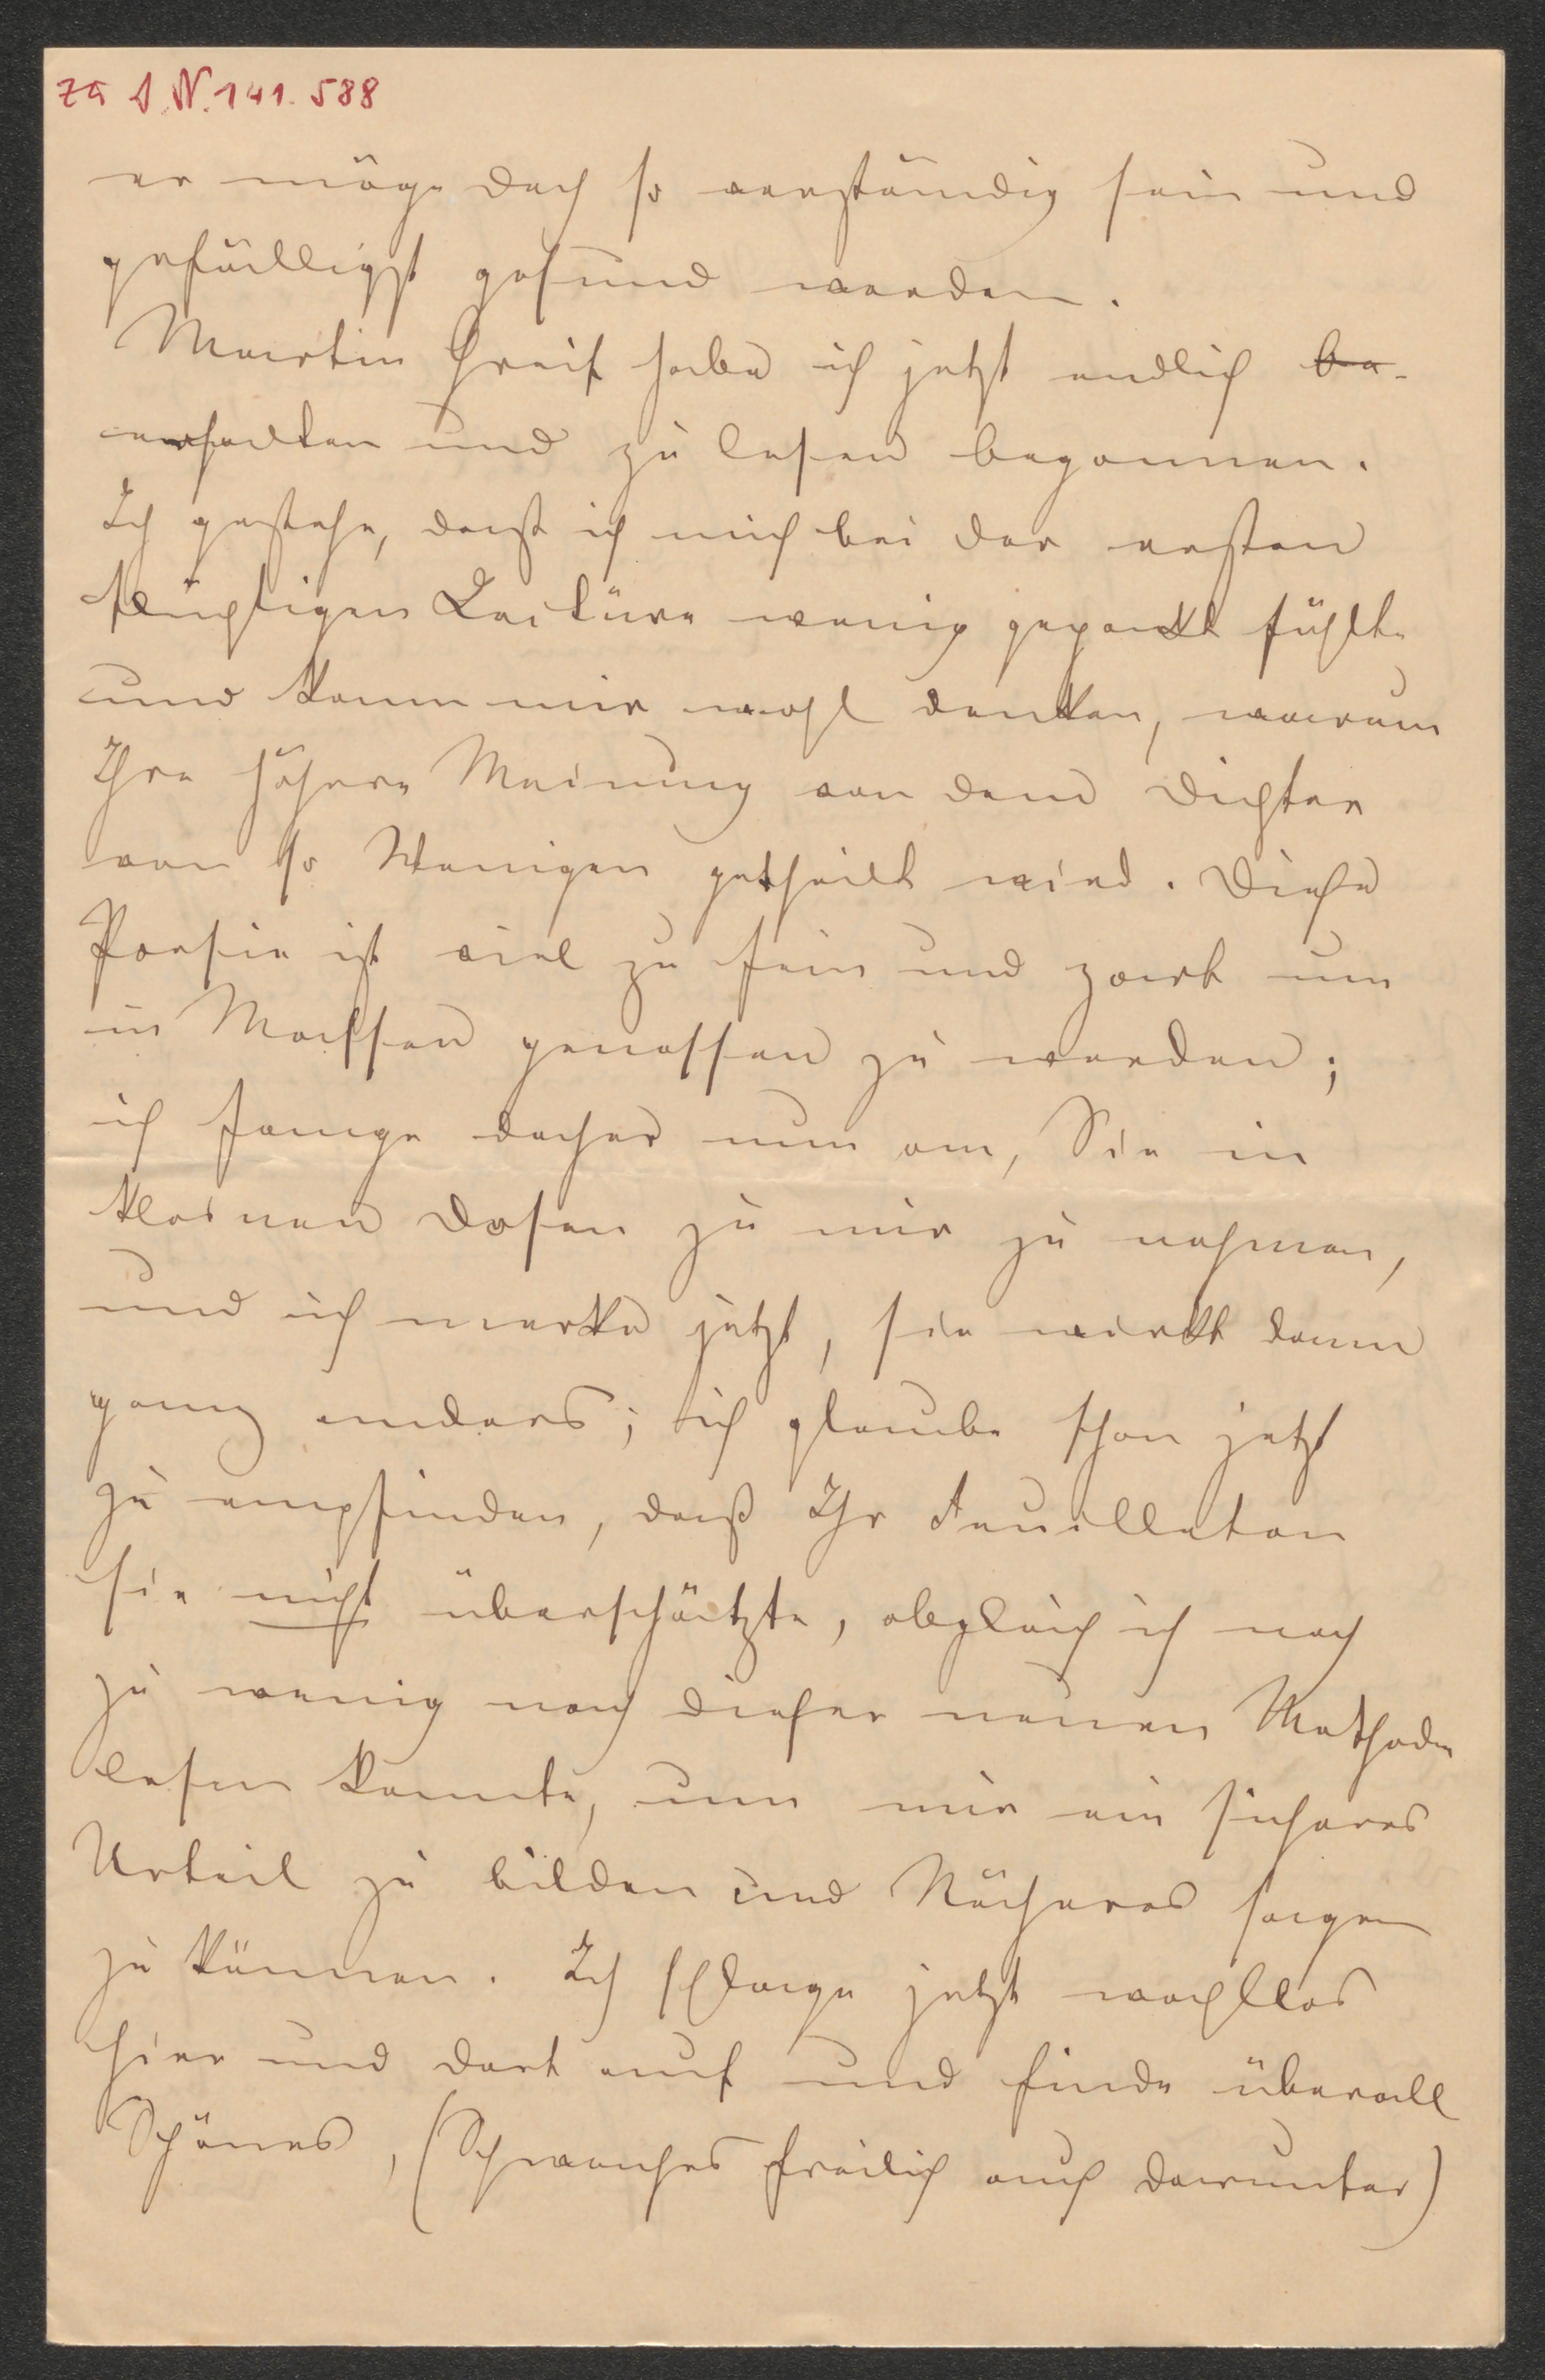 za I.N. 141.588
er möge doch so verständig sein und
gefälligst gesund werden.
Martin Greif habe ich jetzt endlich be-
erhalten und zu lesen begonnen.
Ich gestehe, dass ich mich bei der ersten
flüchtigen Lectüre wenig gepackt fühlte
und kann mir wohl denken, warum
Ihre höhere Meinung von dem Dichter
von so Wenigen getheilt wird. Diese
Poesie ist viel zu fein und zart um
in Massen genossen zu werden;
ich fange daher nun an, Sie in
kleinen Dosen zu mir zu nehmen,
und ich merke jetzt, sie wirkt dann
ganz anders; ich glaube schon jetzt
zu empfinden, daß Ihr Feuilleton
sie nicht überschätzte, obgleich ich noch
zu wenig nach dieser neuen Methode
lesen konnte, um mir ein sicheres
Urteil zu bilden und Näheres sagen
zu können. Ich schlage jetzt wahllos
hier und dort auf und finde überall
Schönes, (Schwaches freilich auch darunter)